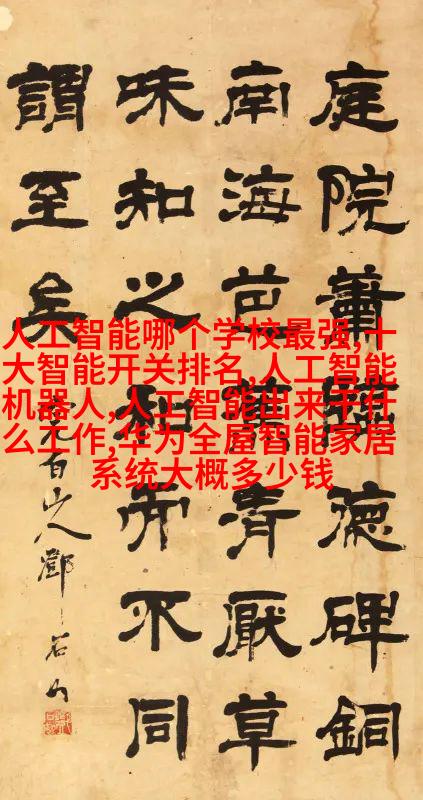 人工智能哪个学校最强,十
大智能开关排名,人工智能
机器人,人工智能出来干什
么工作,华为全屋智能家居
系统大概多少钱
庭院蕭德碑銅
南海芭清厭草
味知之知不同
謂至矣
完白山人鄧石如